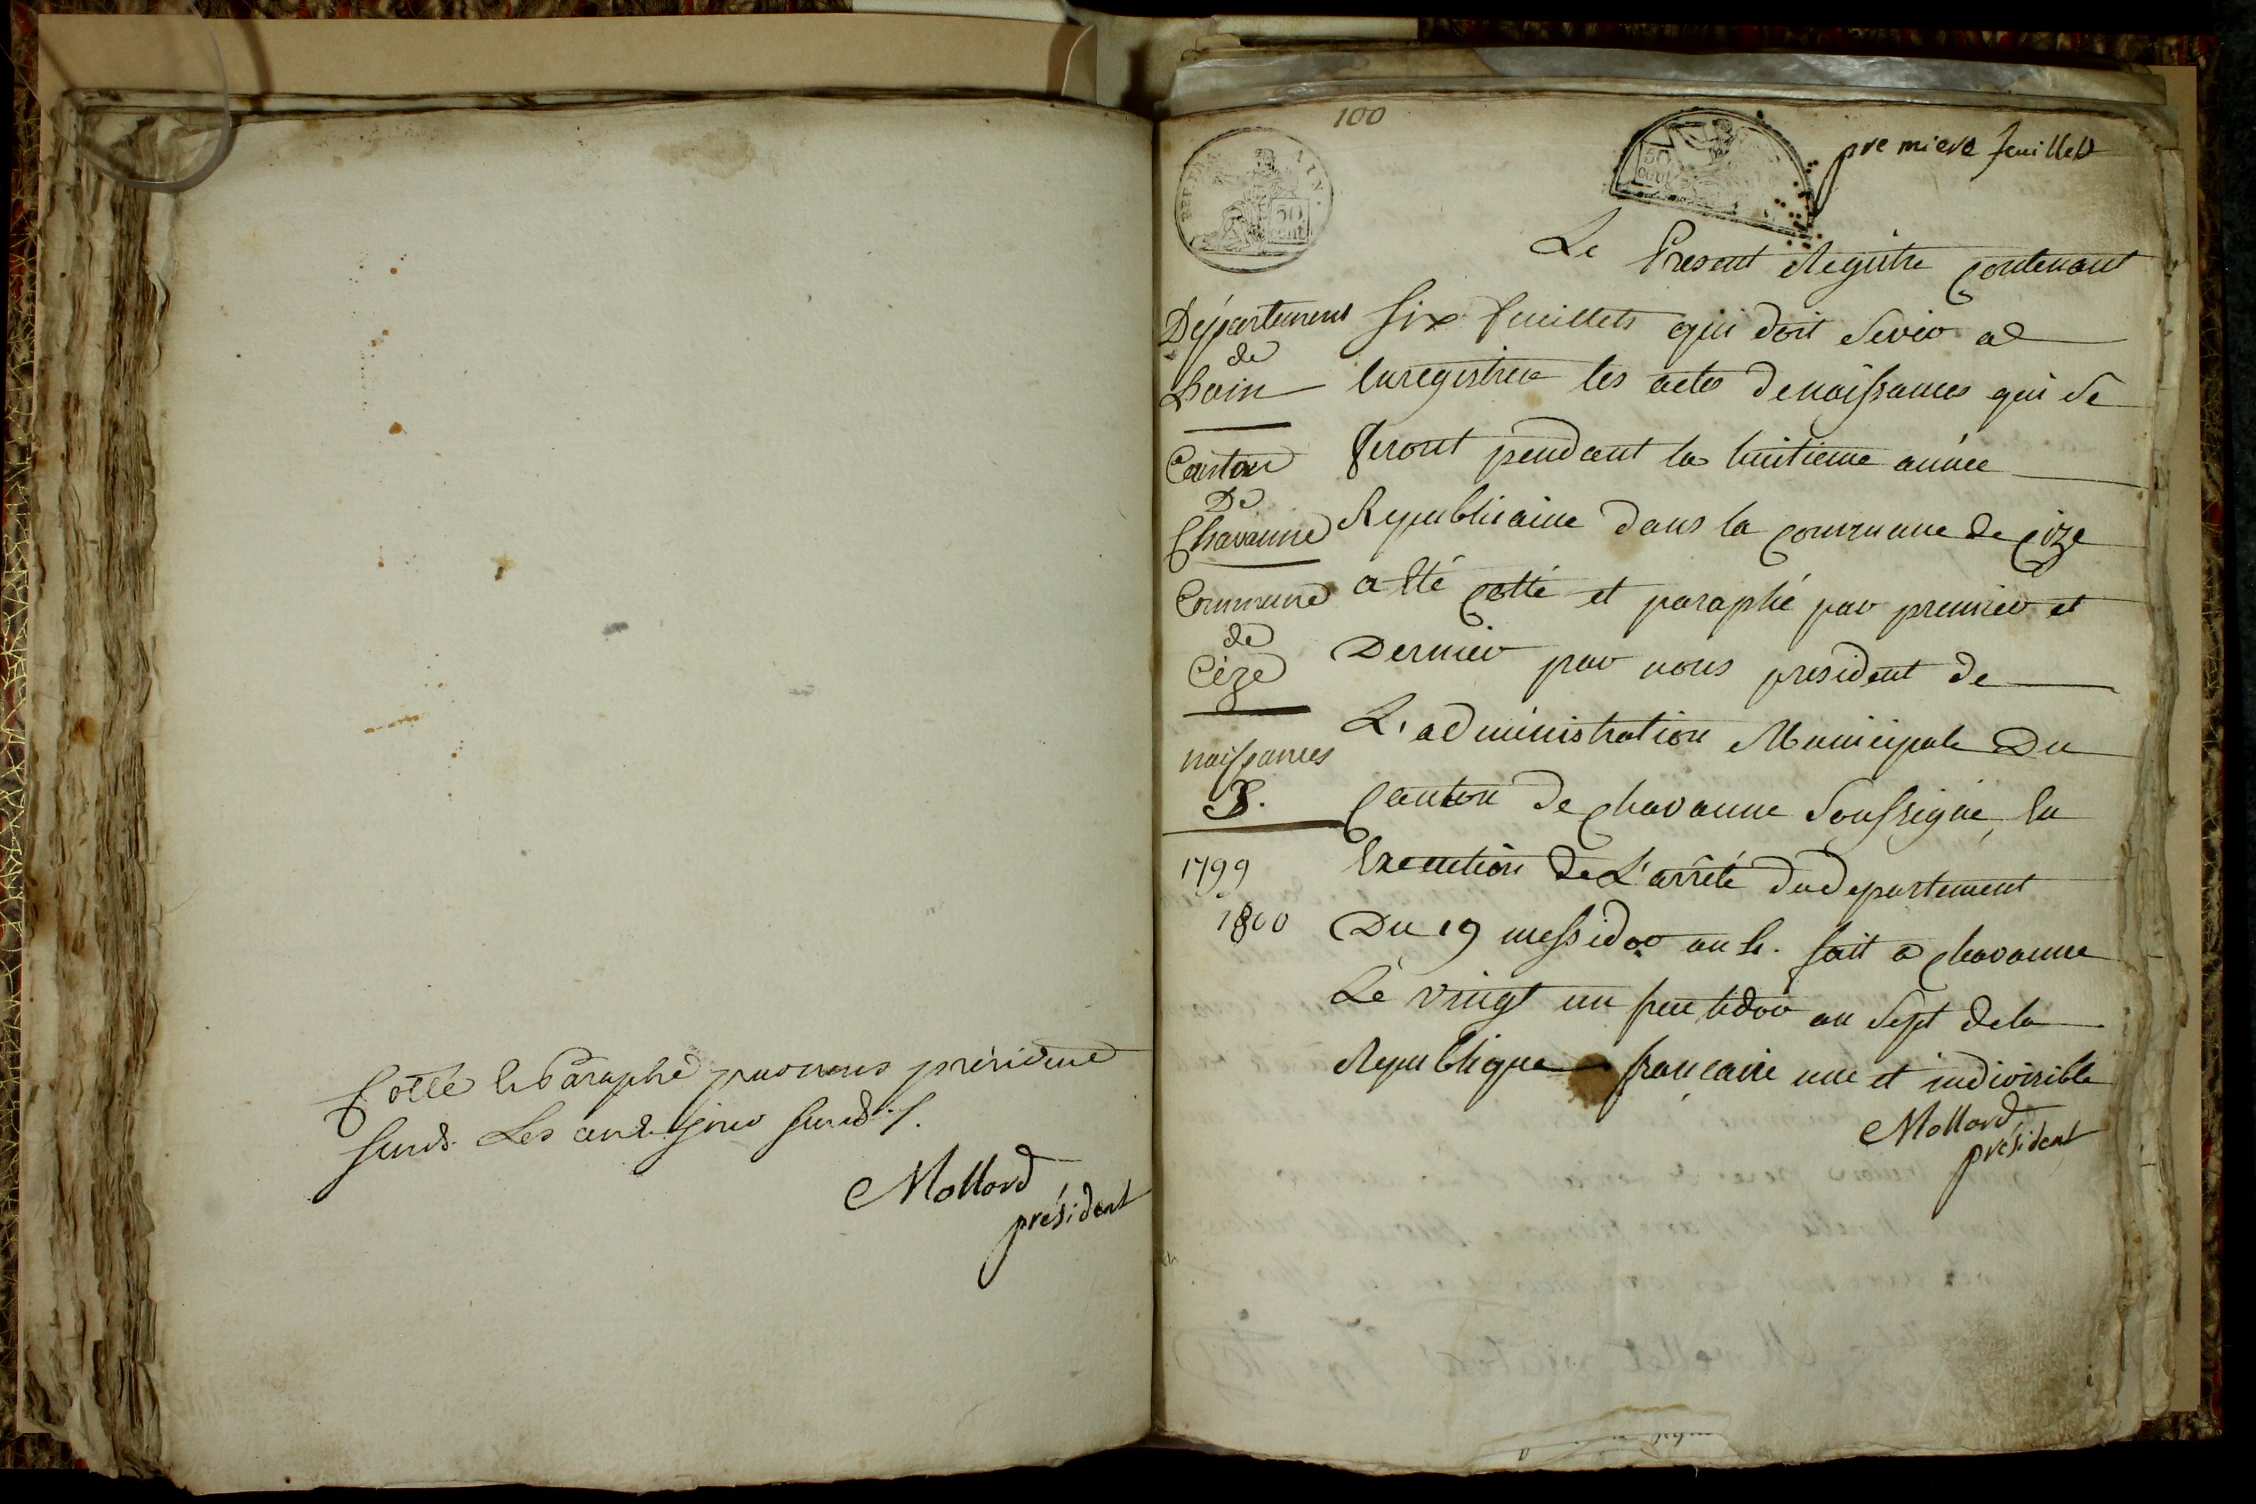 Cotté et Paraphé par nous président
Mollard
président
100
premiere feuillet
REP. FRA
AIN.
50
cent
50
Le Present Registre contenant
Département
de
Lain
Canton
De
Chavanne
Commune
de
Cize
naissances
8.
1799
1800
six feuillets qui doit servir a
Enregistrer les actes de naissances qui se
feront pendant la huitieme année
Republicaine dans la commune de Cize
a été cotté et paraphé par premier et
Dernier par nous president de
L'administration Municipale Du
Canton de Chavanne soussigné, En
Execution de L'arrêté du departement
Du 19 messidor an . fait a Chavanne
Le vingt un fructidor an sept de la
Republique francaise une et indivisible
Mollard
président